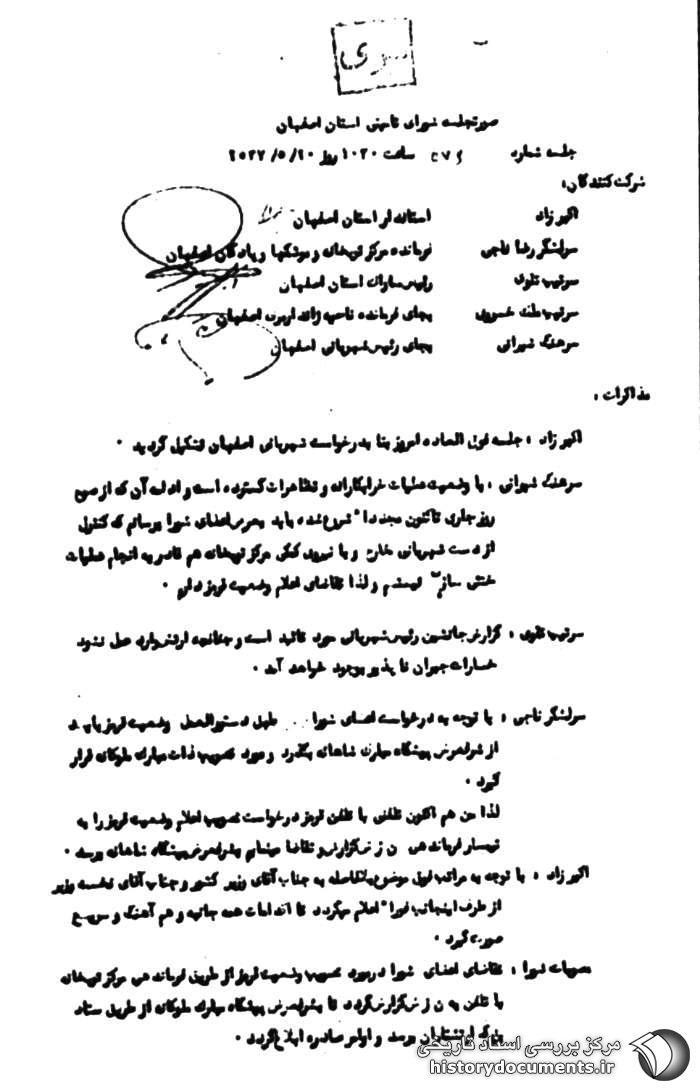 سری
صورتجلسه شورای تامین استان اصفهان
جلسه شماره ساعت ۱۰۳۰ روز ۲۵۳۷/۵/۲۰
شرکت کنندگان:
اکبر زاد استاندار استان اصفهان
سرلشگر رضا ناجی فرمانده مرکز توپخانه و موشکها و پادگان اصفهان
سرتیپ تقوی رئیس ساواک استان اصفهان
سرتیپ ملک خسروی بجای فرمانده ناحیه ژاندارمری اصفهان
سرهنگ شیرانی بجای رئیس شهربانی اصفهان
مذاکرات:
اکبر زاد : جلسه فوق العاده امروز بنا بدرخواست شهربانی اصفهان تشکیل گردید .
سرهنگ شیرانی : با وضعیت عملیات خرابکارانه و تظاهرات گسترده است و ادامه آن که از صبح
روز جاری تاکنون مجددا" شروع شده باید بعرض اعضای شورا برسانم که کنترل
از دست شهربانی خارج و با نیروی کمکی مرکز توپخانه هم قادر به انجام عملیات
خنثی سازی نیستیم و لذا تقاضای اعلام وضعیت قرمز دارم .
سرتیپ تقوی : گزارش جانشین رئیس شهربانی مورد تائید است و چنانچه ارتش وارد عمل نشود
خسارات جبران نا پذیر بوجود خواهد آمد .
سرلشگر ناجی : با توجه به درخواست اعضای شورا طبق دستورالعمل وضعیت قرمز باید
از شرفعرض پیشگاه مبارک شاهانه بگذرد و مورد تصویب ذات مبارک ملوکانه قرار
گیرد .
لذا من هم اکنون تلفنی با تلفن قرمز درخواست تصویب اعلام وضعیت قرمز را به
تیمسار فرماندهی ن ز ش گزارش و تقاضا مینمایم بشرفعرض پیشگاه شاهانه برسد .
اکبر زاد : با توجه به مراتب فوق موضوع بلافاصله به جناب آقای وزیر کشور و جناب آقای نخست وزیر
از طرف اینجانب فورا" اعلام میگردد تا اقدامات همه جانبه و هم آهنگ و سریع
صورت گیرد .
مصوبات شورا : تقاضای اعضای شورا در مورد تصویب وضعیت قرمز از طریق فرماندهی مرکز توپخانه
با تلفن به ن ز ش گزارش گردد تا بشرفعرض پیشگاه مبارک ملوکانه از طریق ستاد
بزرگ ارتشتاران برسد و اوامر صادره ابلاغ گردد .
مرکز بررسی اسناد تاریخی
historydocuments.ir